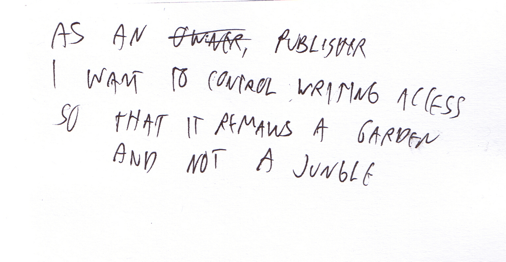 AS AN OWNER, PUBLISHER
I WANT TO CONTROL WRITING ACCESS
SO THAT IT REMAINS A GARDEN
AND NOT A JUNGLE